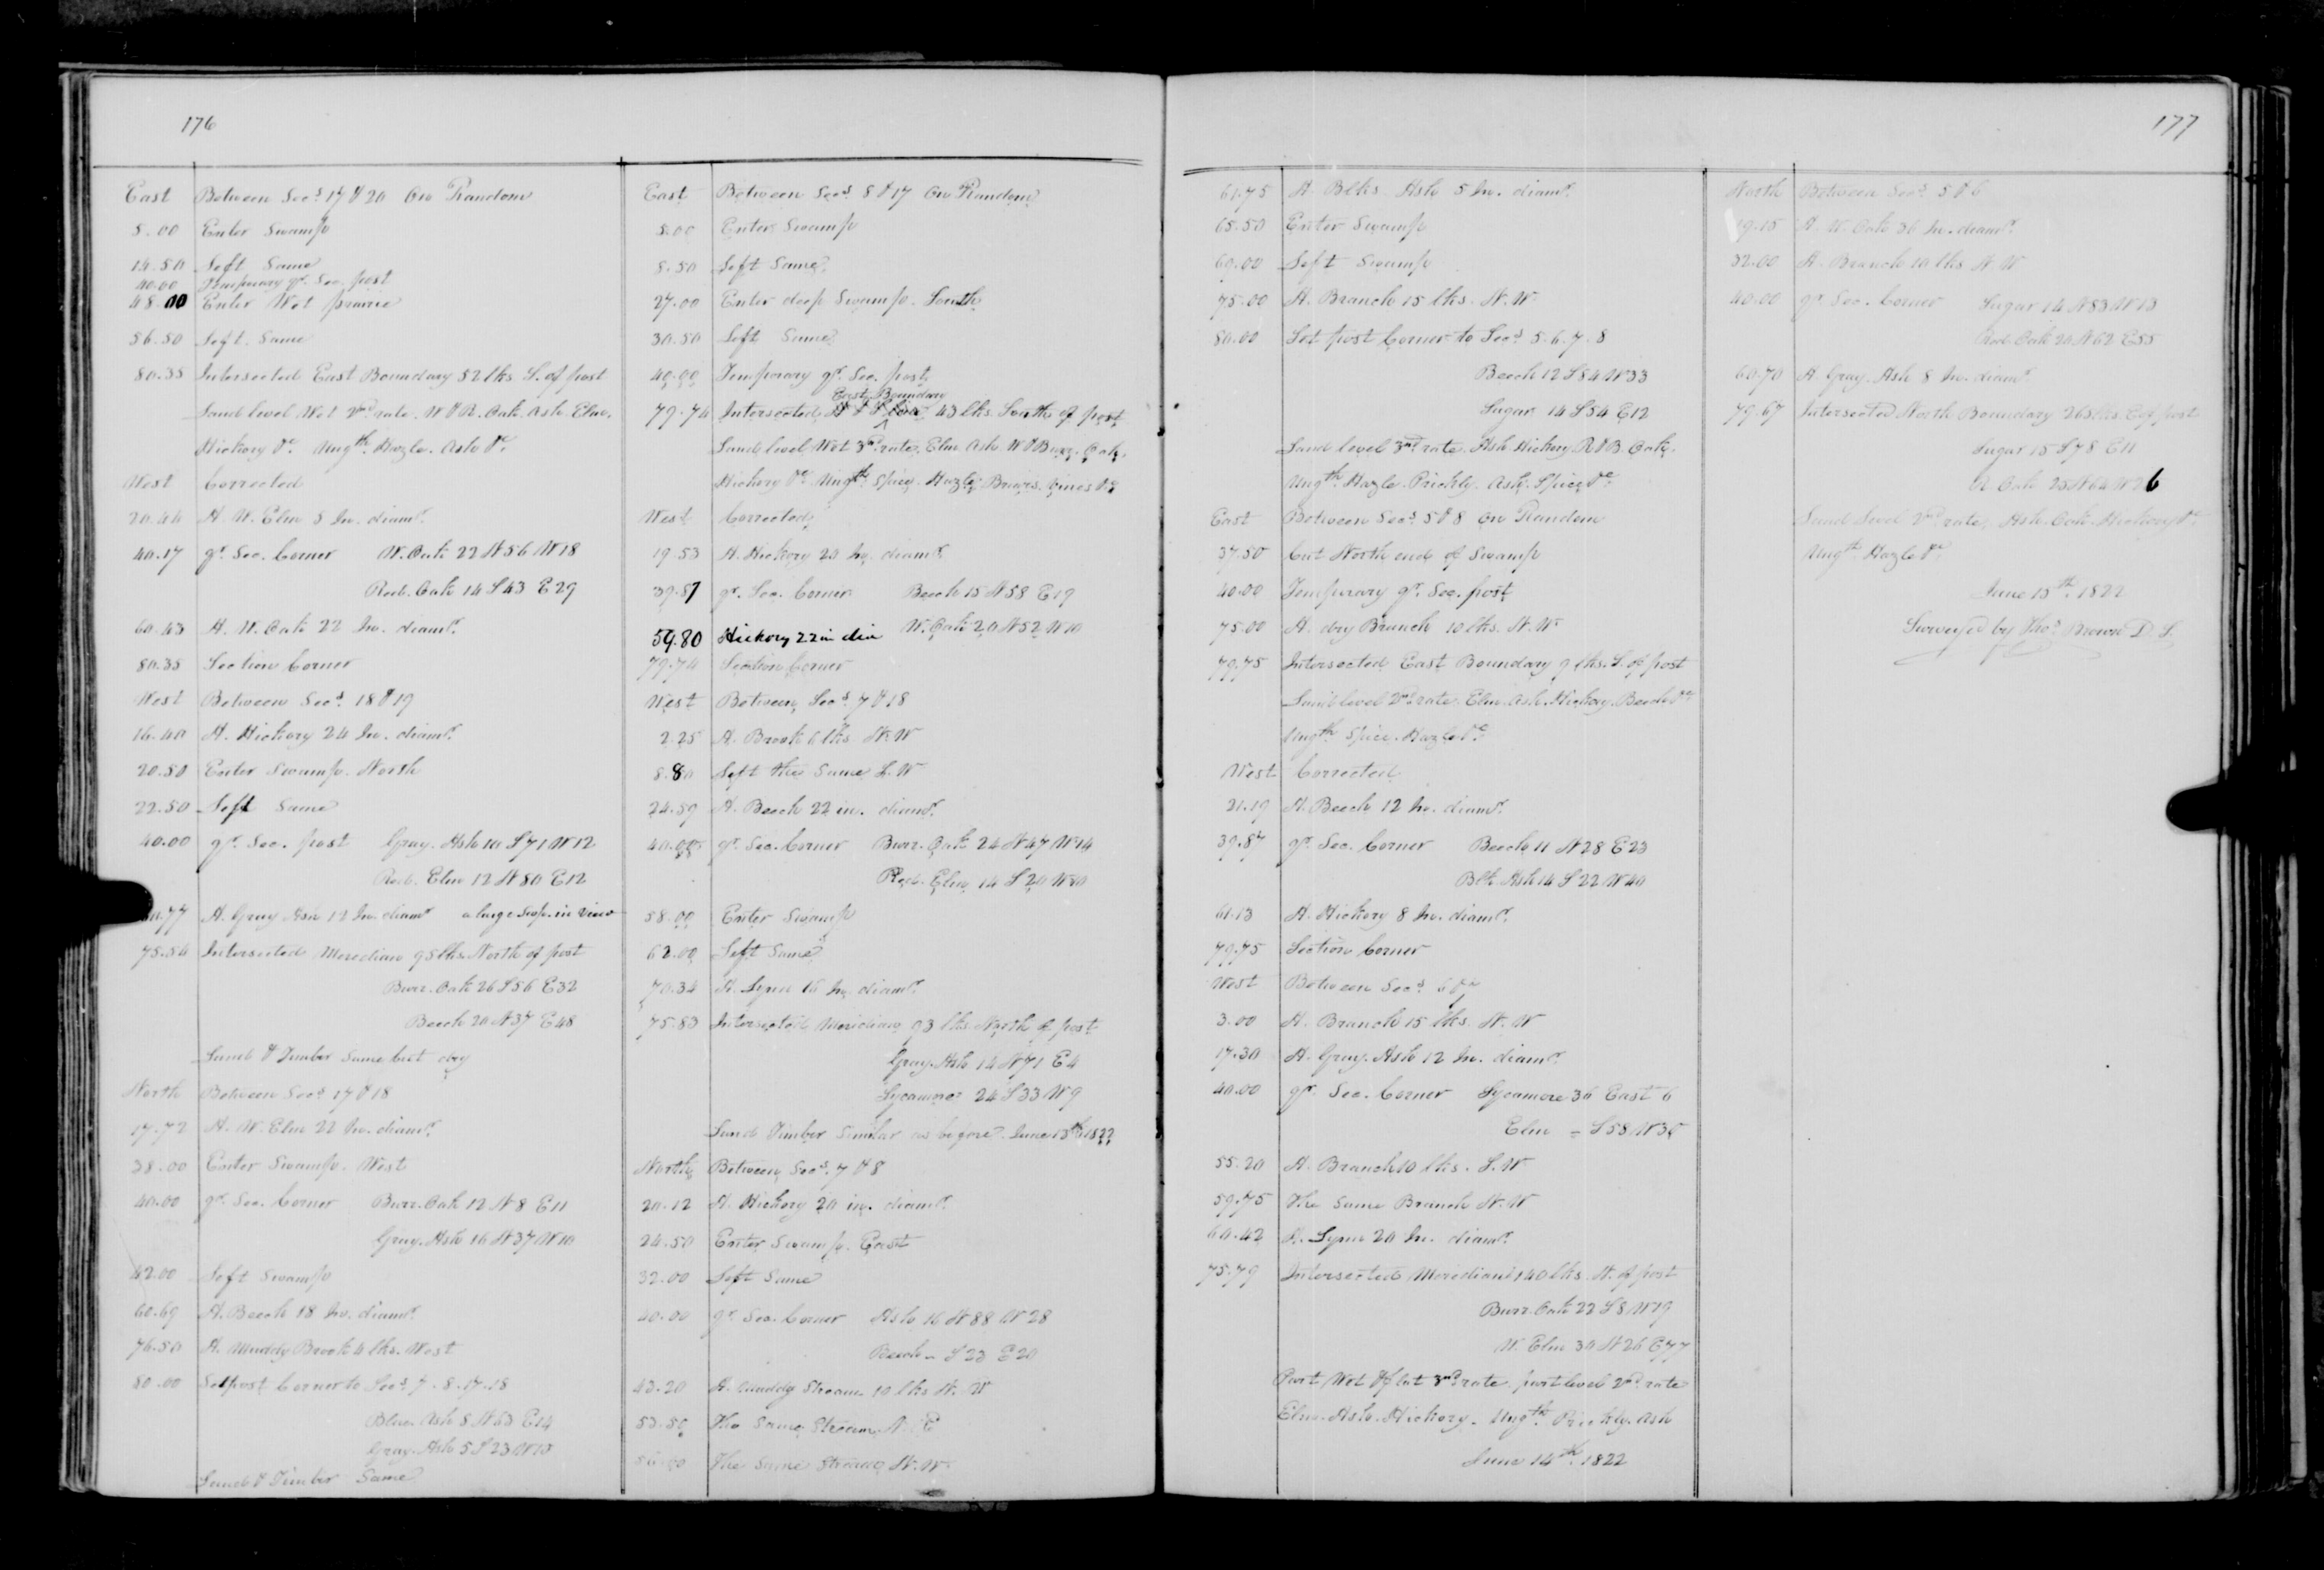 176
East Between Secs 17 & 20 On Random
5.00 Enter Swamp
14.50 Left Same
40.00 Temporary qr. Sec. post
48.00 Enter Wet prairie
56.50 Left Same
80.35 Intersected East Boundary 52 lks. S. of post
Land level Wet 2nd rate. W & R. Oak. Ash. Elm.
Hickory &c. Ungth. Hazle. Ash &c.
West Corrected
20.44 A. W. Elm 8 In. diamr.
40.17 qr. Sec. Corner W. Oak 22 N56 W18
Red. Oak 14 S43 E29
60.43 A. W. Oak 22 In. diamr.
80.35 Section Corner
West Between Secs 18 & 19
16.40 A. Hickory 24 In. diamr.
20.50 Enter Swamp. North
22.50 Left Same
40.00 qr. Sec. post Gray. Ash 10 S71 W12
Red. Elm 12 N80 E12
.77 A. Gray Ash 12 In. diamr a large Swp. in View
75.54 Intersected Meredian 95 lks. North of post
Burr. Oak 26 S56 E32
Beech 20 N37 E48
Land & Timber Same but dry
North Between Secs 17 & 18
17.72 A. W. Elm 22 In. diamr.
38.00 Enter Swamp. West
40.00 qr. Sec. Corner Burr. Oak 12 N8 E11
Gray. Ash 16 N37 W10
42.00 Left Swamp
60.69 A. Beech 18 In. diamr.
76.50 A. Muddy Brook 4 lks. West
80.00 Set post Corner to Secs 7.8.17.18
Blue. Ash 8 N63 E14
Gray. Ash 5 S23 W15
Land & Timber Same
East Between Secs 8 & 17 On Random
5.00 Enter Swamp
8.50 Left Same
27.00 Enter deep Swamp. South
30.50 Left Same
40.00 Temporary qr. Sec. post
East Boundary
79.74 Intersected 43 lks. South of post
Land level Wet 3rd rate. Elm Ash W & Burr. Oak.
Hickory &c. Ungth. Spice. Hazle. Briars. Vines &c
West Corrected
19.53 A. Hickory 20 In. diamr.
39.87 qr. Sec. Corner Beech 15 N58 E19
W. Oak 20 N52 W10
59.80 Hickory 22 in dia
79.74 Section Corner
West Between Secs 7 & 18
2.25 A. Brook 6 lks. N.W
8.80 Left the Same S.W
24.59 A. Beech 22 in. diamr.
40.00 qr. Sec. Corner Burr. Oak 24 N47 W14
Red. Elm 14 S20 W80
58.00 Enter Swamp
62.00 Left Same
70.34 A. Lynn 16 In. diamr.
75.83 Intersected Meridian 93 lks. North of post
Gray. Ash 14 N71 E4
Sycamore 24 S33 W9
Land Timber Similar as before. June 13th 1822
North Between Secs. 7 & 8
20.12 A. Hickory 20 in. diamr.
24.50 Enter Swamp. East
32.00 Left Same
40.00 qr. Sec. Corner Ash 16 N88 W28
Beech – S23 E20
43.20 A. muddy Stream 10 lks N. W
53.50 The Same Stream N. E
The Same Stream N. W.
177
61.75 A. Blk. Ash 5 In. diamr.
65.50 Enter Swamp
69.00 Left Swamp
75.00 A. Branch 15 lks. N.W.
80.00 Set post Corner to Secs 5.6.7.8
Beech 12 S84 W33
Sugar 14 S54 E12
Land level 3rd rate. Ash Hickory R & B. Oak.
Ungth. Hazle. Prickly. Ash. Spice &c.
East Between Secs. 5 & 8 On Random
37.50 Cut North end of Swamp
40.00 Temporary qr. Sec. post
75.00 A. dry Branch 10 lks. N. W.
79.75 Intersected East Boundary 9 lks. S. of post
Land level 2nd rate. Elm. Ash. Hickory. Beech &c
Ungth. Spice. Hazle &c
West Corrected
21.19 A. Beech 12 In. diamr.
39.87 qr. Sec. Corner Beech 11 N28 E23
Blk. Ash 14 S22 W40
61.13 A. Hickory 8 In. diamr.
79.75 Section Corner
West Between Secs. 6 & 7
3.00 A. Branch 15 lks. N. W
17.30 A. Gray. Ash 12 In. diamr.
40.00 qr. Sec. Corner Sycamore 36 East 6
Elm – S58 W35
55.20 A. Branch 10 lks. S.W
59.75 The Same Branch N.W
60.42 A. Lynn 20 In. diamr.
75.79 Intersected Meredian 140 lks. N. of post
Burr. Oak 22 S8 W19
W. Elm 30 N26 E77
Part Wet & flat 3rd rate. part level 2nd rate
Elm. Ash. Hickory. Ungth. Prickly. Ash
June 14th. 1822
North Between Secs 5 & 6
19.15 A. W. Oak 36 In. diamr.
32.00 A. Branch 10 lks N.W
40.00 qr. Sec. Corner Sugar 14 N83 W13
Red. Oak 20 N62 E55
60.70 A. Gray. Ash 8 In. diamr.
79.67 Intersected North Boundary 265 lks. E of post
Sugar 15 S78 E11
R. Oak 25 N64 W26
Land Level 2nd rate. Ash. Oak. Hickory &c
Ungth. Hazle &c.
June 15th. 1822
Surveyed by Thos. Brown D. S.